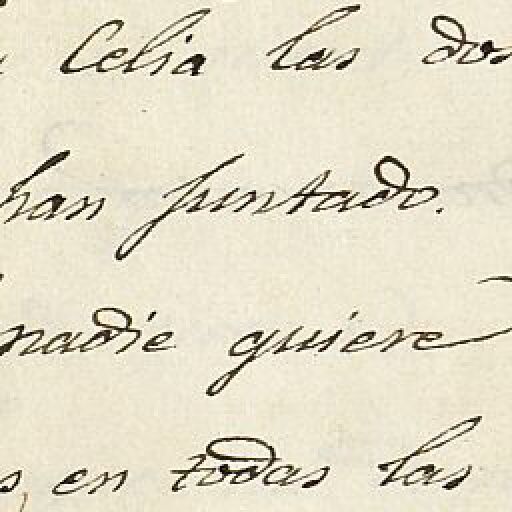 Celia las dos
han juntado.
nadie quiere
s, en todas las